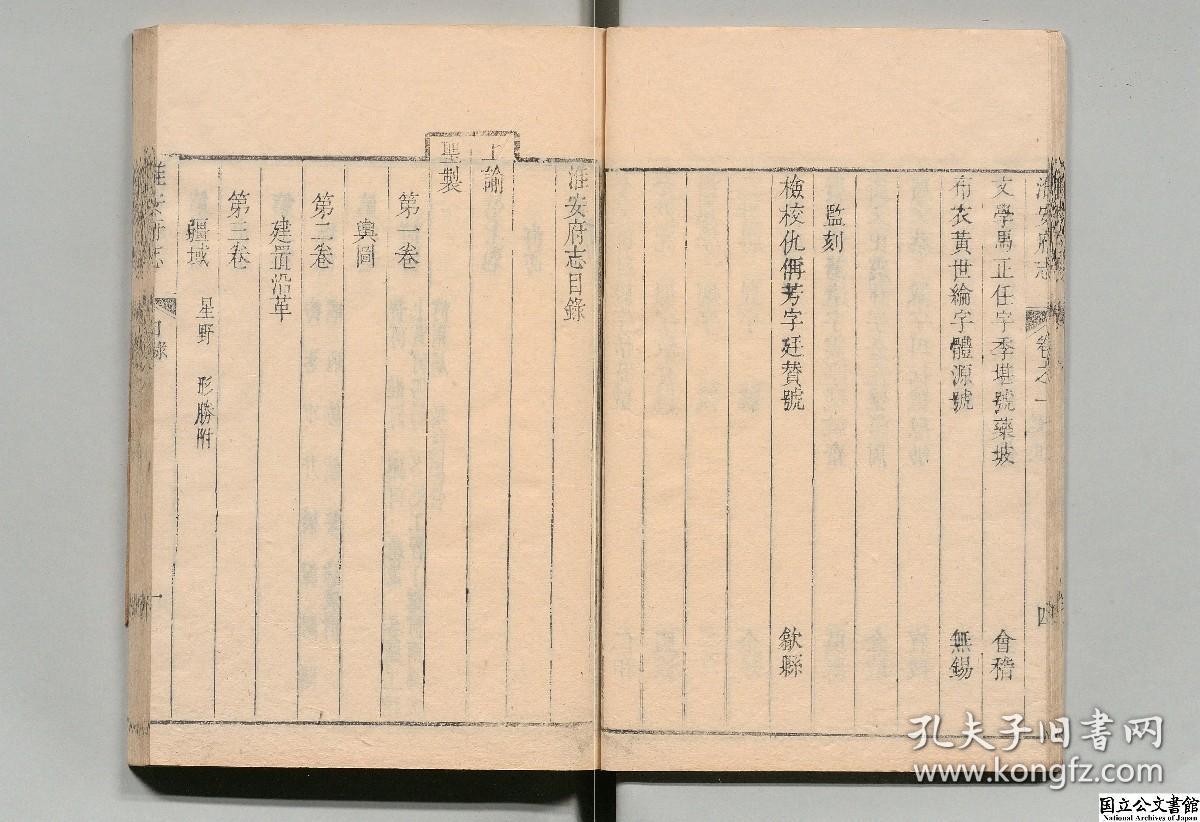 文學馬正任字季堪號藥坡 會稽
布衣黃世綸字體源號 無錫
監刻
檢校仇俑芳字廷贊號 歙縣
淮安府志 卷之一 四
淮安府志目錄
上諭
聖製
第一卷
輿圖
第二卷
建置沿革
第三卷
疆域 星野 形勝附
淮安府志 目錄 一
孔夫子旧书网
www.kongfz.com
国立公文書館
National Archives of Japan